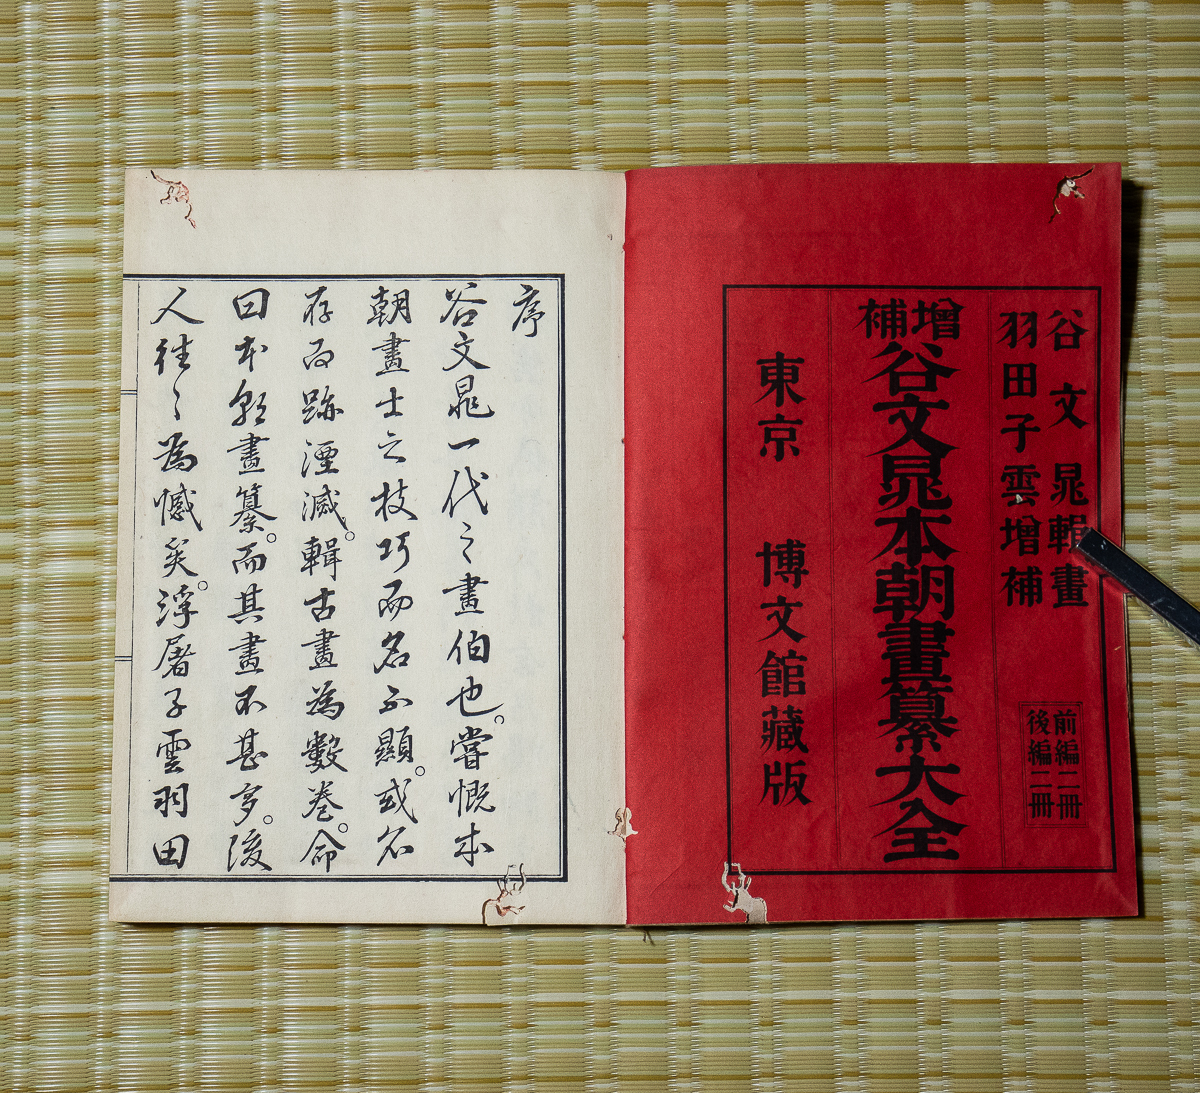 谷文晁輯畫
羽田子雲増補
前編二冊
後編二冊
増補
谷文晁本朝畫纂大全
東京 博文館藏版
序
谷文晁一代之畫伯也。嘗慨本
朝畫士之技巧而名不顯。或名
存而跡湮滅。輯古畫為數卷。命
曰本朝畫纂。而其畫不甚多。後
人往々為憾矣。浮屠子雲羽田